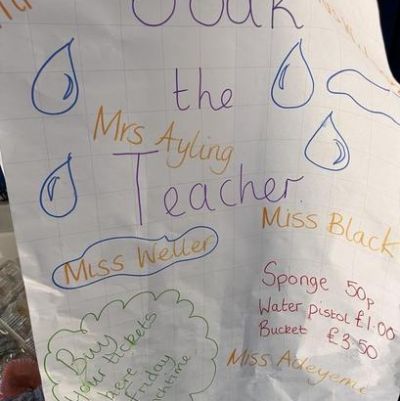 Soak
the
Mrs Ayling
Teacher
Miss Black
Miss Weller
Sponge 50p
Water pistol £1.00
Bucket £3.50
Miss Adeyemi
Buy
your tickets
here
Friday